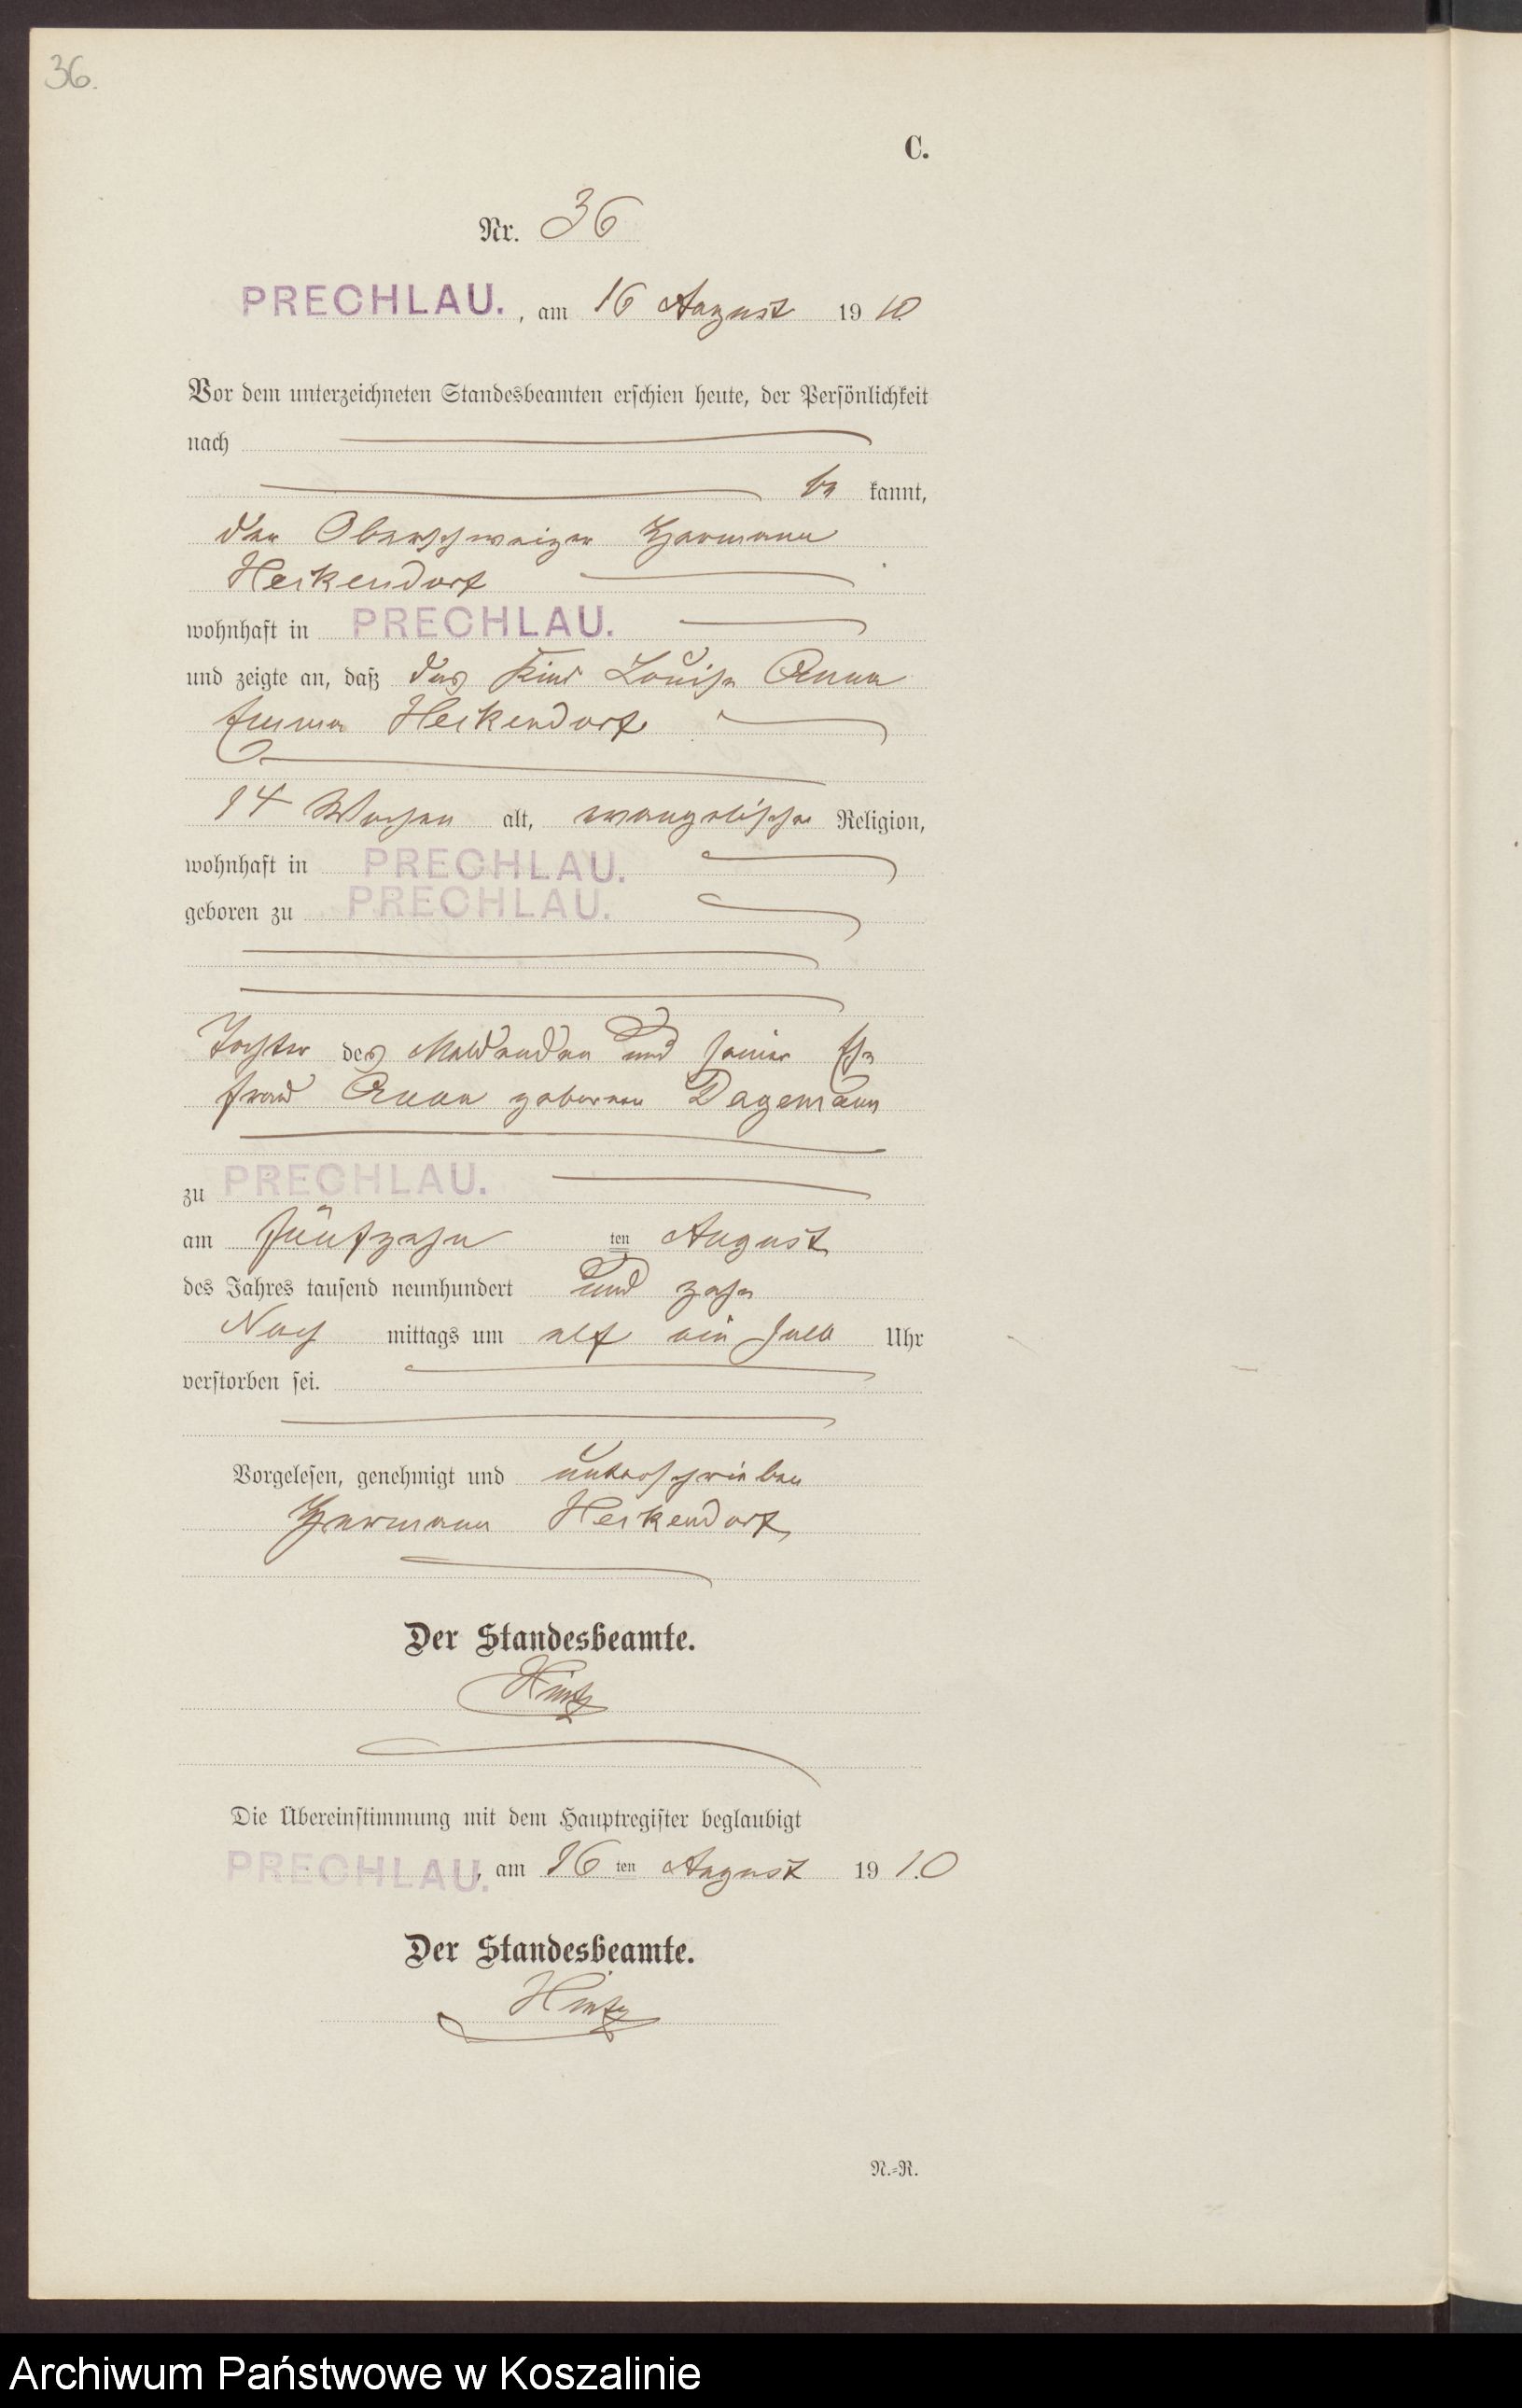 36.
C.
Nr. 36
PRECHLAU. , am 16 August 1910
Vor dem unterzeichneten Standesbeamten erschien heute, der Persönlichkeit
nach
be kannt,
der Oberschweizer Hermann
Heikendorf
wohnhaft in PRECHLAU.
und zeigte an, daß das Kind Louise Anna
Emma Heikendorf
14 Wochen alt, evangelischer Religion,
wohnhaft in PRECHLAU.
geboren zu PRECHLAU.
Tochter des Meldenden und seiner Ehe
frau Anna geborenen Dagemann
zu PRECHLAU.
am fünfzehn ten August
des Jahres tausend neunhundert und zehn
Nach mittags um elf ein halb Uhr
verstorben sei.
Vorgelesen, genehmigt und unterschrieben
Hermann Heikendorf
Der Standesbeamte.
Hintz
Die Übereinstimmung mit dem Hauptregister beglaubigt
PRECHLAU. , am 16 ten August 1910
Der Standesbeamte.
Hintz
N.=R.
Archiwum Państwowe w Koszalinie